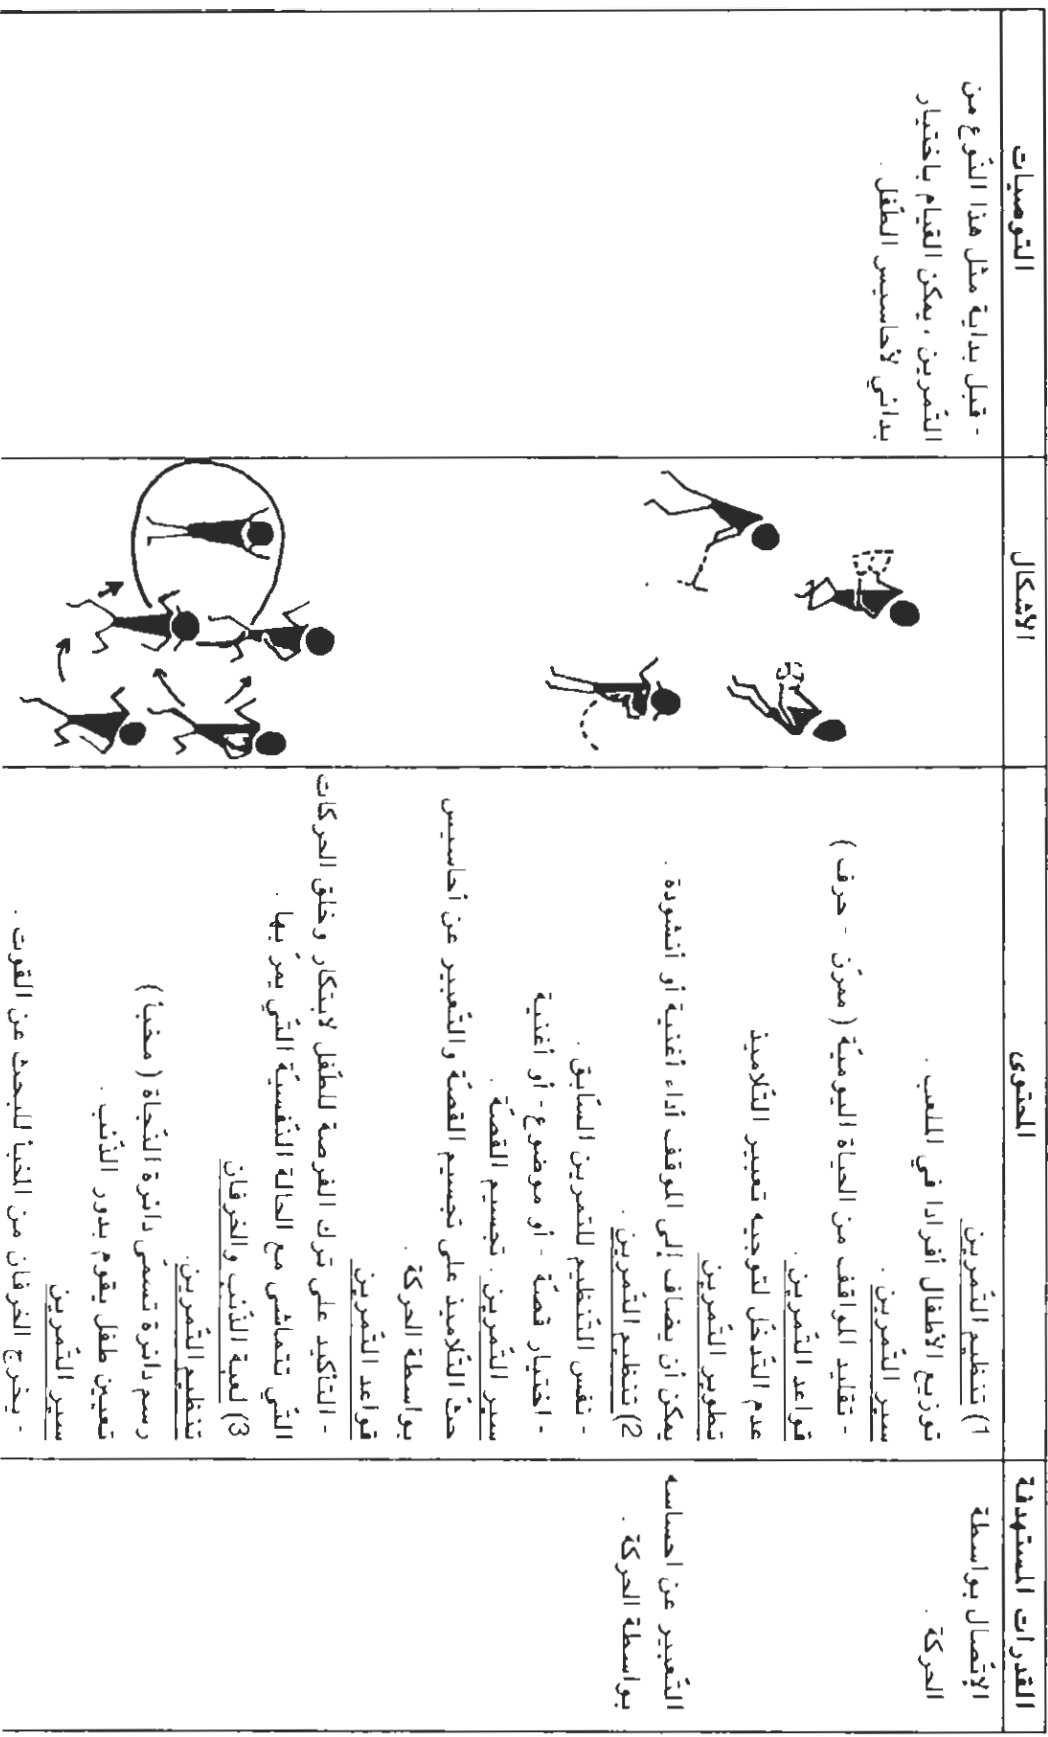 القدرات المستهدفة
المحتوى
الأشكال
التوصيات
الإتّصال بواسطة
الحركة .
التّعبير عن احساسه
بواسطة الحركة .
1) تنظيم التّمرين
توزيع الأطفال أفرادا في الملعب .
سير التّمرين .
- تقليد المواقف من الحياة اليوميّة ( ممرّن - حرف )
قواعد التّمرين .
عدم التّدخّل لتوجيه تعبير التّلاميذ
تطوير التّمرين
يمكن أن يضاف إلى الموقف أداء أغنية أو أنشودة .
2) تنظيم التّمرين .
- نفس التّنظيم للتمرين السّابق .
- اختيار قصّة - أو موضوع - أو أغنية
سير التّمرين . تجسيم القصّة .
حثّ التّلاميذ على تجسيم القصّة والتّعبير عن أحاسيس
بواسطة الحركة .
قواعد التّمرين
- التّأكيد على ترك الفرصة للطّفل لابتكار وخلق الحركات
التّي تتماشى مع الحالة النّفسيّة التّي يمرّ بها .
3) لعبة الذّئب والخرفان
تنظيم التّمرين.
رسم دائرة تسمّى دائرة النّجاة ( مخبأ )
تعيين طفل يقوم بدور الذّئب .
سير التّمرين
- يخرج الخرفان من المخبأ للبحث عن القوت .
- قبل بداية مثل هذا النّوع من
التّمرين ، يمكن القيام باختبار
بدائي لأحاسيس الطّفل .